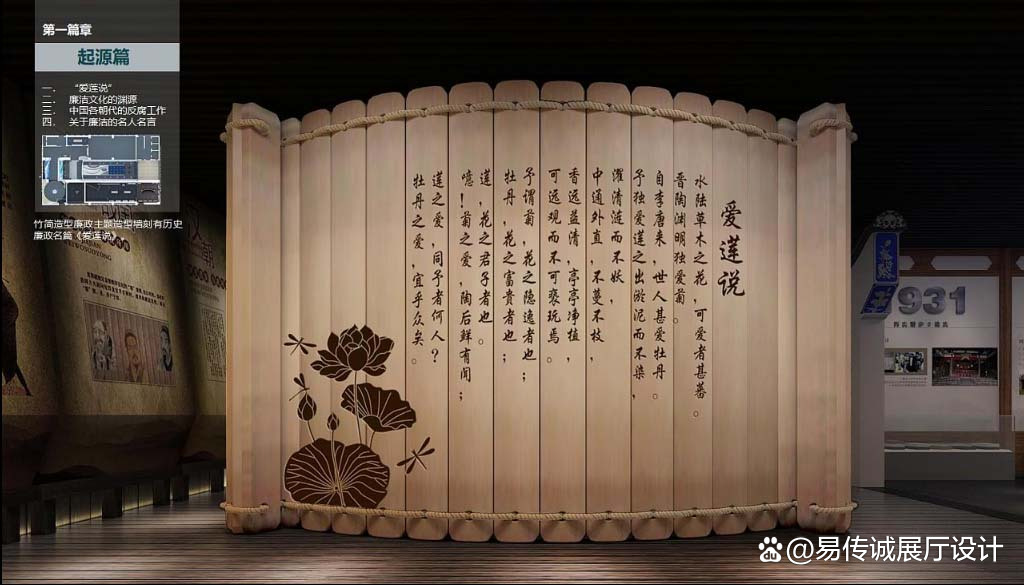 第一篇章
起源篇
一、 “爱莲说”
二、 廉洁文化的渊源
三、 中国各朝代的反腐工作
四、 关于廉洁的名人名言
竹简造型廉政主题造型墙刻有历史
廉政名篇《爱莲说》
爱莲说
水陆草木之花，可爱者甚蕃。
晋陶渊明独爱菊。
自李唐来，世人甚爱牡丹。
予独爱莲之出淤泥而不染，
濯清涟而不妖，
中通外直，不蔓不枝，
香远益清，亭亭净植，
可远观而不可亵玩焉。
予谓菊，花之隐逸者也；
牡丹，花之富贵者也；
莲，花之君子者也。
噫！菊之爱，陶后鲜有闻；
莲之爱，同予者何人？
牡丹之爱，宜乎众矣。
931
@易传诚展厅设计